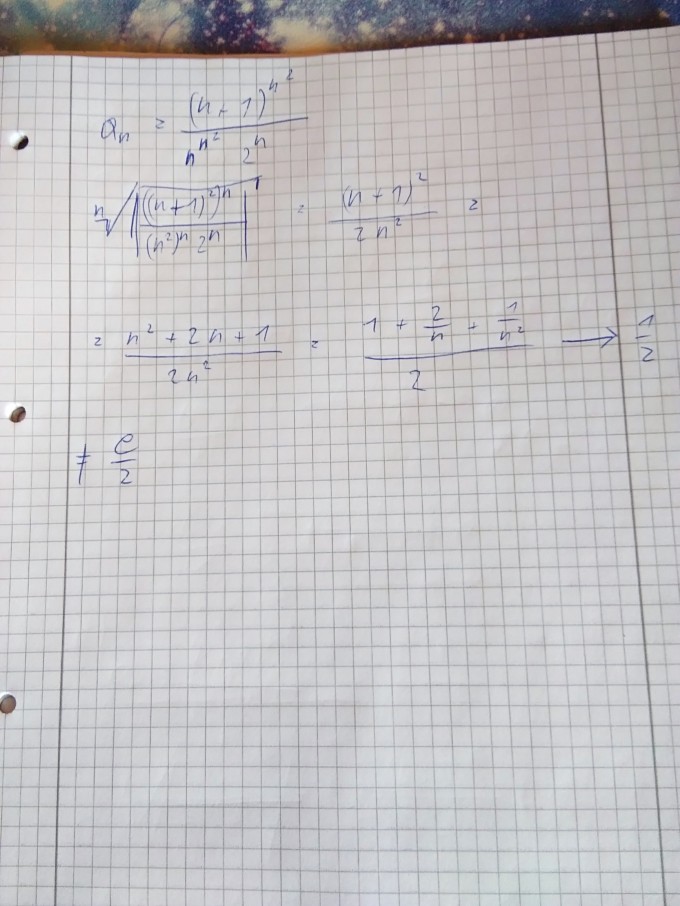 a_n = (n+1)^{n^2} / (n^{n^2} 2^n)
\sqrt[n]{| ((n+1)^2)^n / ((n^2)^n 2^n) |} = (n+1)^2 / (2n^2) =
= (n^2 + 2n + 1) / (2n^2) = (1 + 2/n + 1/n^2) / 2 → 1/2
≠ e/2